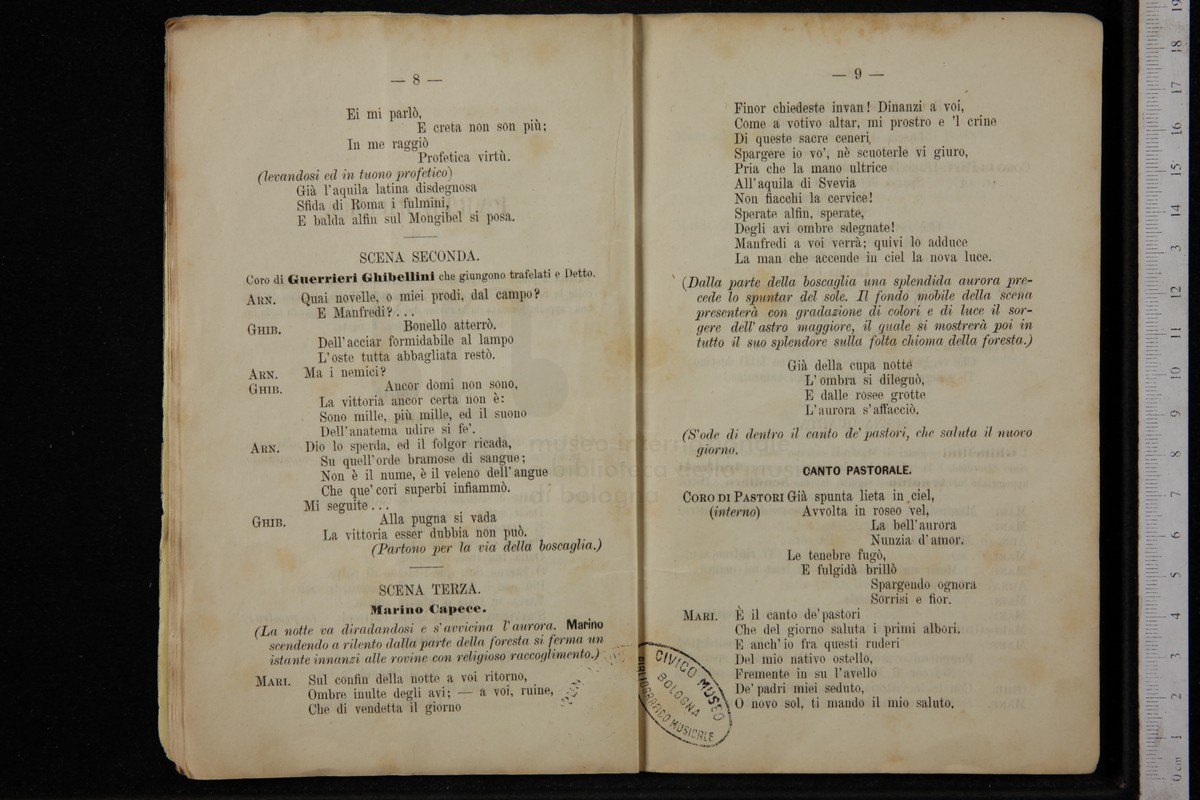 — 8 —
Ei mi parlò,
E creta non son più;
In me raggiò
Profetica virtù.
(levandosi ed in tuono profetico)
Già l'aquila latina disdegnosa
Sfida di Roma i fulmini,
E balda alfin sul Mongibel si posa.
SCENA SECONDA.
Coro di Guerrieri Ghibellini che giungono trafelati e Detto.
ARN. Quai novelle, o miei prodi, dal campo?
E Manfredi?...
GHIB. Bonello atterrò.
Dell'acciar formidabile al lampo
L'oste tutta abbagliata restò.
ARN. Ma i nemici?
GHIB. Ancor domi non sono,
La vittoria ancor certa non è:
Sono mille, più mille, ed il suono
Dell'anatema udire si fe'.
ARN. Dio lo sperda, ed il folgor ricada,
Su quell'orde bramose di sangue;
Non è il nume, è il veleno dell'angue
Che que' cori superbi infiammò.
Mi seguite...
GHIB. Alla pugna si vada
La vittoria esser dubbia non può.
(Partono per la via della boscaglia.)
SCENA TERZA.
Marino Capece.
(La notte va diradandosi e s'avvicina l'aurora. Marino
scendendo a rilento dalla parte della foresta si ferma un
istante innanzi alle rovine con religioso raccoglimento.)
MARI. Sul confin della notte a voi ritorno,
Ombre inulte degli avi; — a voi, ruine,
Che di vendetta il giorno
— 9 —
Finor chiedeste invan! Dinanzi a voi,
Come a votivo altar, mi prostro e 'l crine
Di queste sacre ceneri,
Spargere io vo', nè scuoterle vi giuro,
Pria che la mano ultrice
All'aquila di Svevia
Non fiacchi la cervice!
Sperate alfin, sperate,
Degli avi ombre sdegnate!
Manfredi a voi verrà; quivi lo adduce
La man che accende in ciel la nova luce.
(Dalla parte della boscaglia una splendida aurora pre-
cede lo spuntar del sole. Il fondo mobile della scena
presenterà con gradazione di colori e di luce il sor-
gere dell'astro maggiore, il quale si mostrerà poi in
tutto il suo splendore sulla folta chioma della foresta.)
Già della cupa notte
L'ombra si dileguò,
E dalle rosee grotte
L'aurora s'affacciò.
(S'ode di dentro il canto de' pastori, che saluta il nuovo
giorno.
CANTO PASTORALE.
CORO DI PASTORI Già spunta lieta in ciel,
(interno) Avvolta in roseo vel,
La bell'aurora
Nunzia d'amor.
Le tenebre fugò,
E fulgidà brillò
Spargendo ognora
Sorrisi e fior.
MARI. È il canto de' pastori
Che del giorno saluta i primi albori.
E anch'io fra questi ruderi
Del mio nativo ostello,
Fremente in su l'avello
De' padri miei seduto,
O novo sol, ti mando il mio saluto.
CIVICO MUSEO
BIBLIOGRAFICO MUSICALE
BOLOGNA
museo internazionale
biblioteca della musica
di bologna
0 cm 1 2 3 4 5 6 7 8 9 10 11 12 13 14 15 16 17 18 19